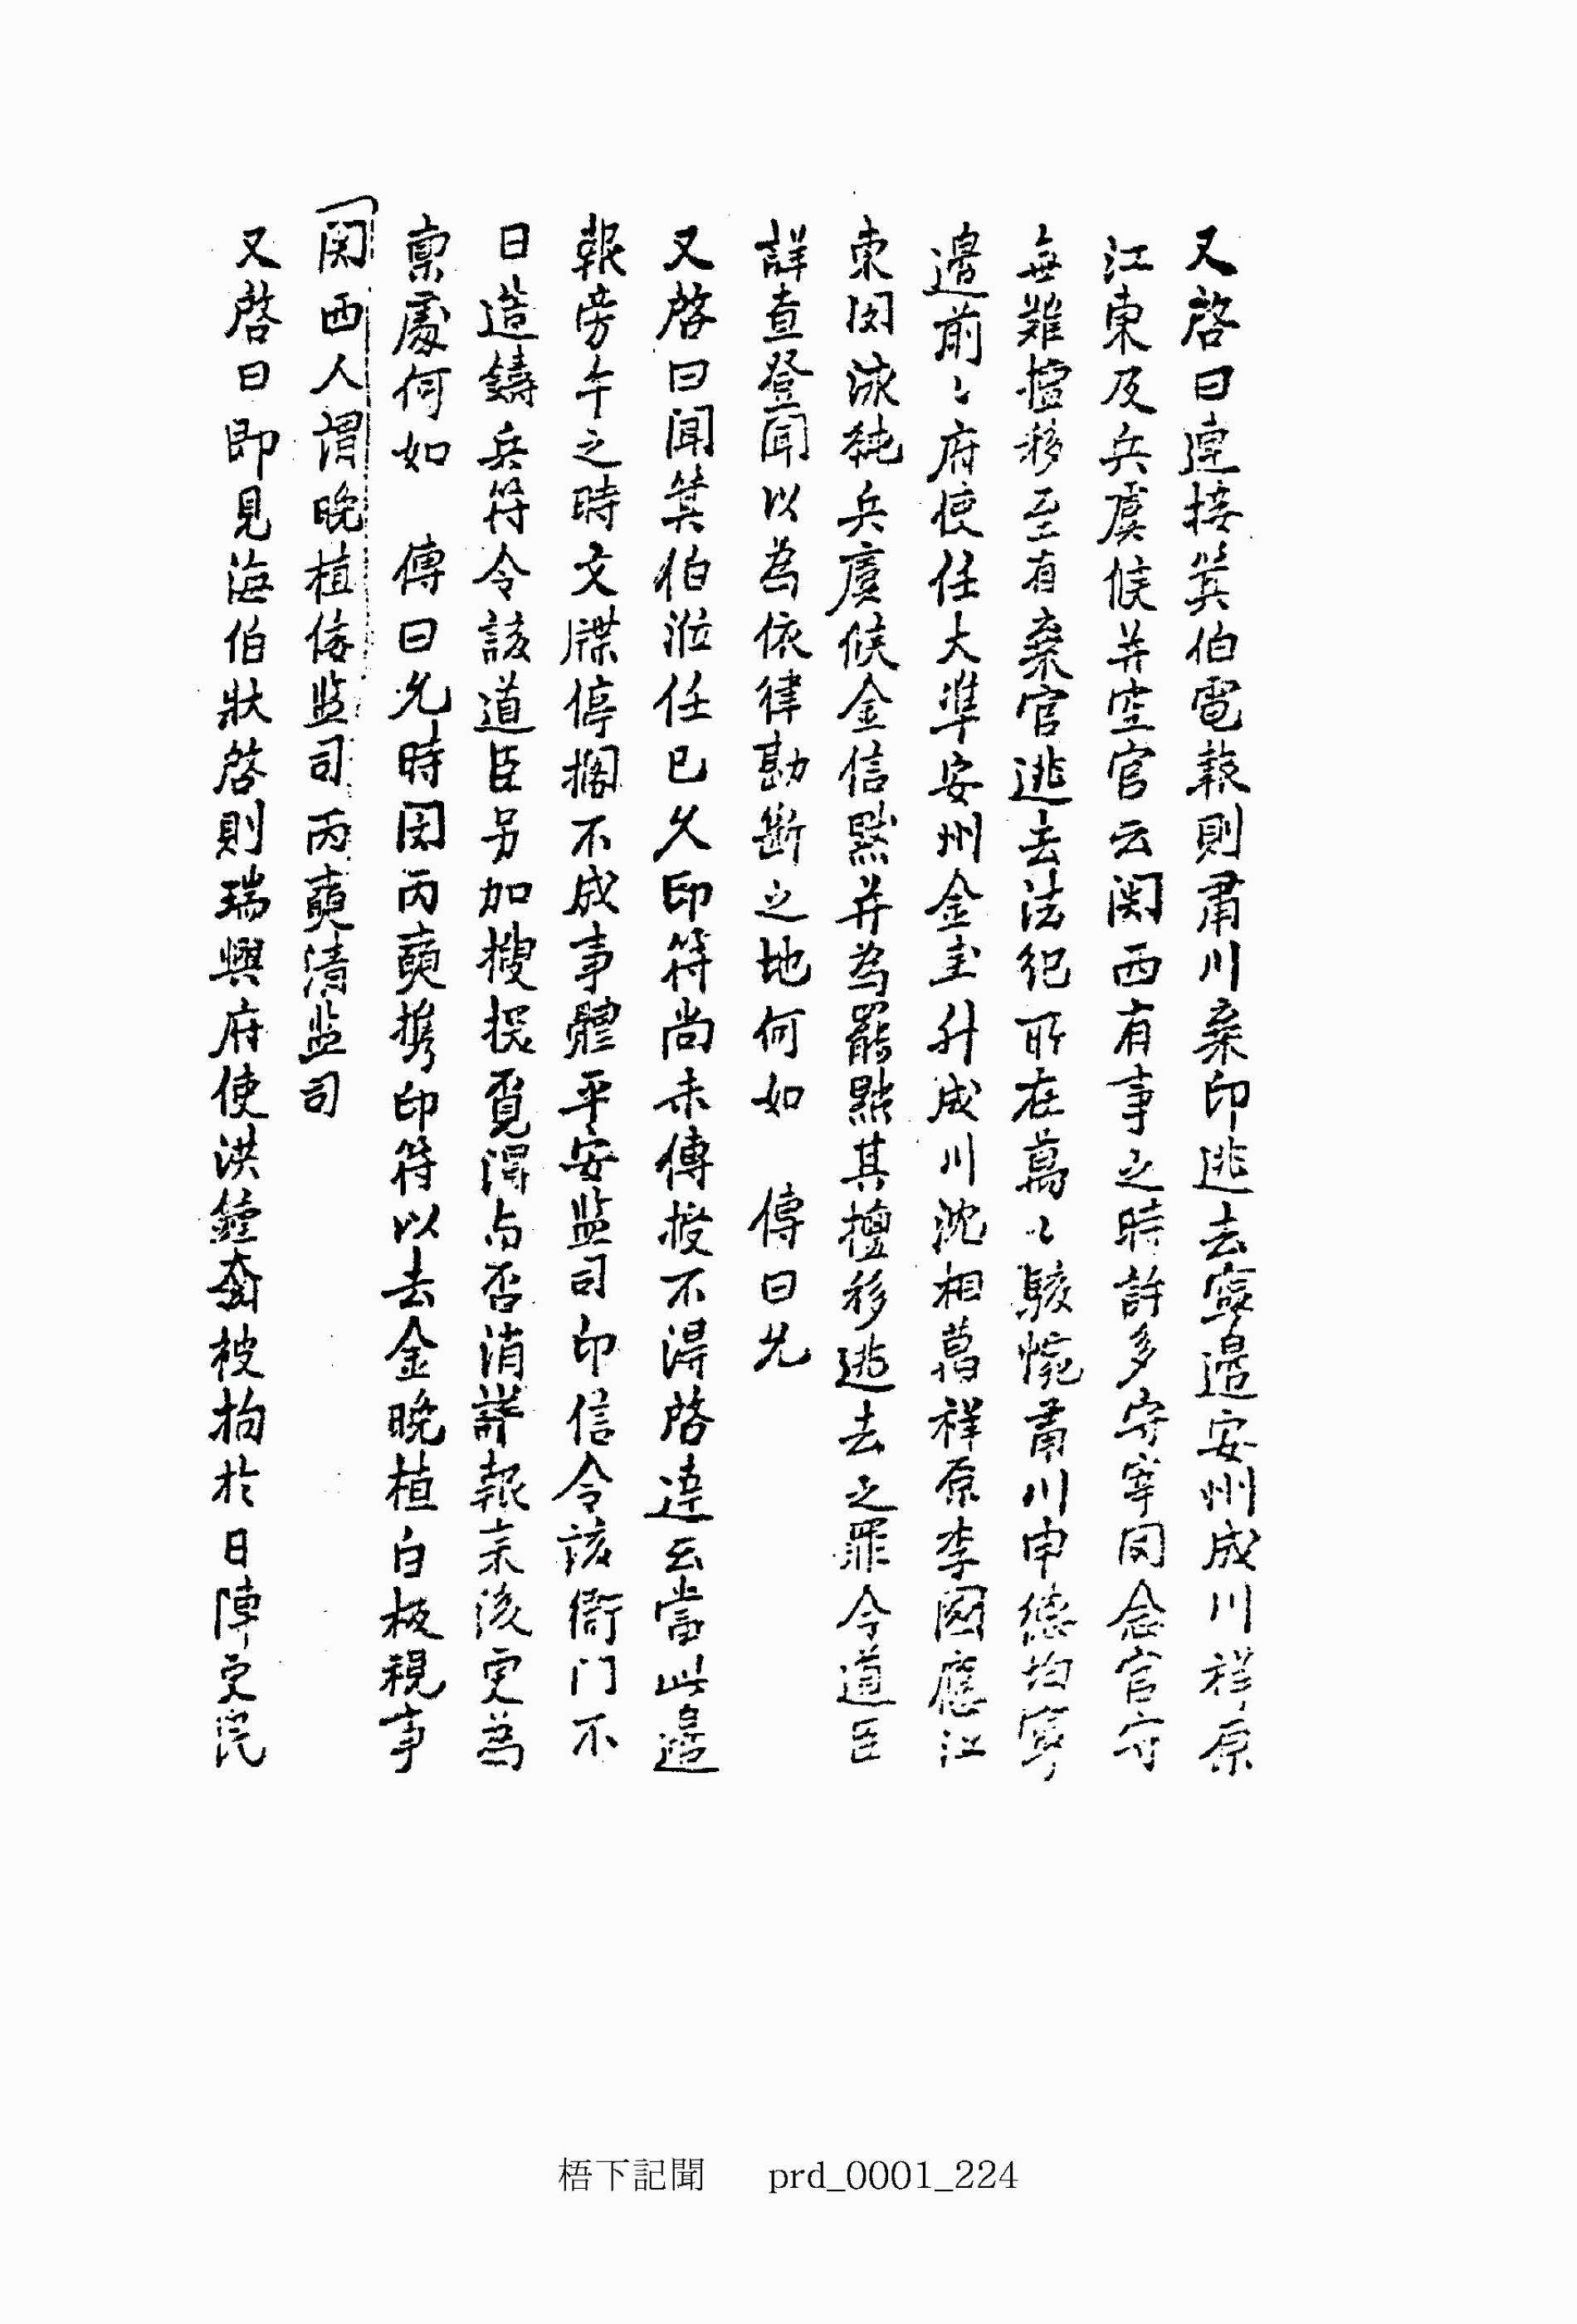 又啓曰連接箕伯電報則肅川棄印逃去寧邊安州成川祥原
江東及兵虞候并空官云関西有事之時許多守宰罔念官守
無難擅移至有棄官逃去法紀所在萬〻駭惋肅川申德均寧
邊前〻府使任大準安州金圭升成川沈相萬祥原李國應江
東閔泳純兵虞候金信黙并為罷黜其擅移逃去之罪令道臣
詳査登聞以為依律勘斷之地何如　傳曰允
又啓曰聞箕伯涖任已久印符尚未傳授不得啓達云當此邊
報旁午之時文牒停擱不成事體平安監司印信令該衙门不
日造鑄兵符令該道臣另加搜探覓得与否消詳報來後更為
稟處何如　傳曰允時閔丙奭携印符以去金晩植白板視事
関西人謂晩植假監司丙奭清監司
又啓日即見海伯狀啓則瑞興府使洪鍾奫被拘於日陣吏民